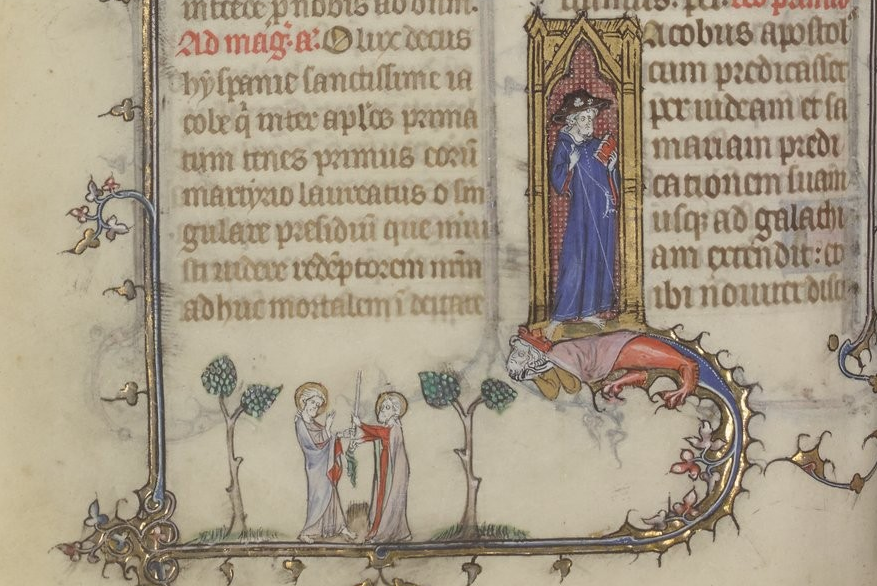 Ad mag. a. O lux decus
hyspanie sanctissime ia
cobe q̄ inter apłos prima
tum tenes primus eorū
martyrio laureatus o sin
gulare presidiū que meru
isti uidere redēptorem nr̄m
adhuc mortalem ī deitate
acobus apostol
cum predicasset
per iudeam et sa
mariam predi
cationem suam
usqꝫ ad galathi
am extendit: et
ibi nouiter disci